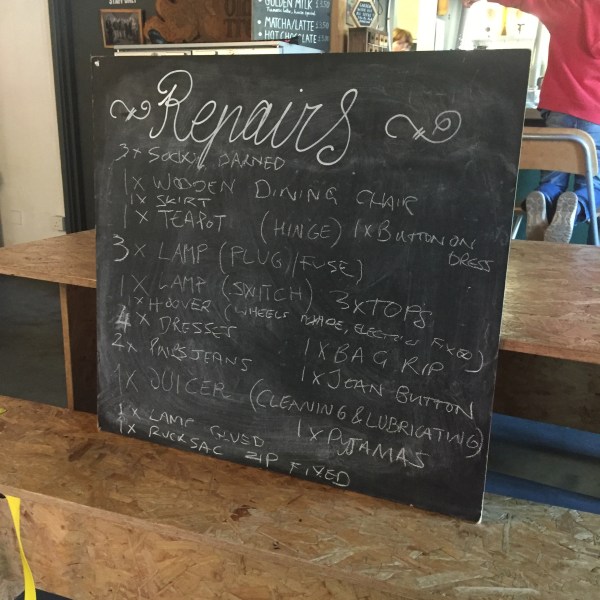 GOLDEN MILK 3.50
MATCHA/LATTE 3.50
HOT CHOCOLATE
Repairs
3x SOCKS DARNED
1x WOODEN DINING CHAIR
1x SKIRT
1x TEAPOT (HINGE) 1x BUTTON ON DRESS
3x LAMP (PLUG)/FUSE)
1x LAMP (SWITCH) 3xTOPS
1xHOOVER (WHEELS MADE, ELECTRICS FIXED)
4x DRESSES 1xBAG RIP
2x PAIRS JEANS 1xJEAN BUTTON
1x JUICER (CLEANING & LUBRICATING)
1x LAMP GLUED 1xPYJAMAS
1x RUCKSAC ZIP FIXED